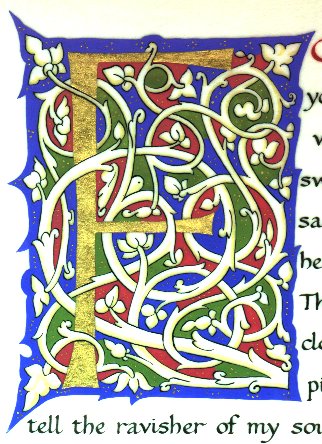 F
yo
sw
sa
he
Th
pi
tell the ravisher of my sou